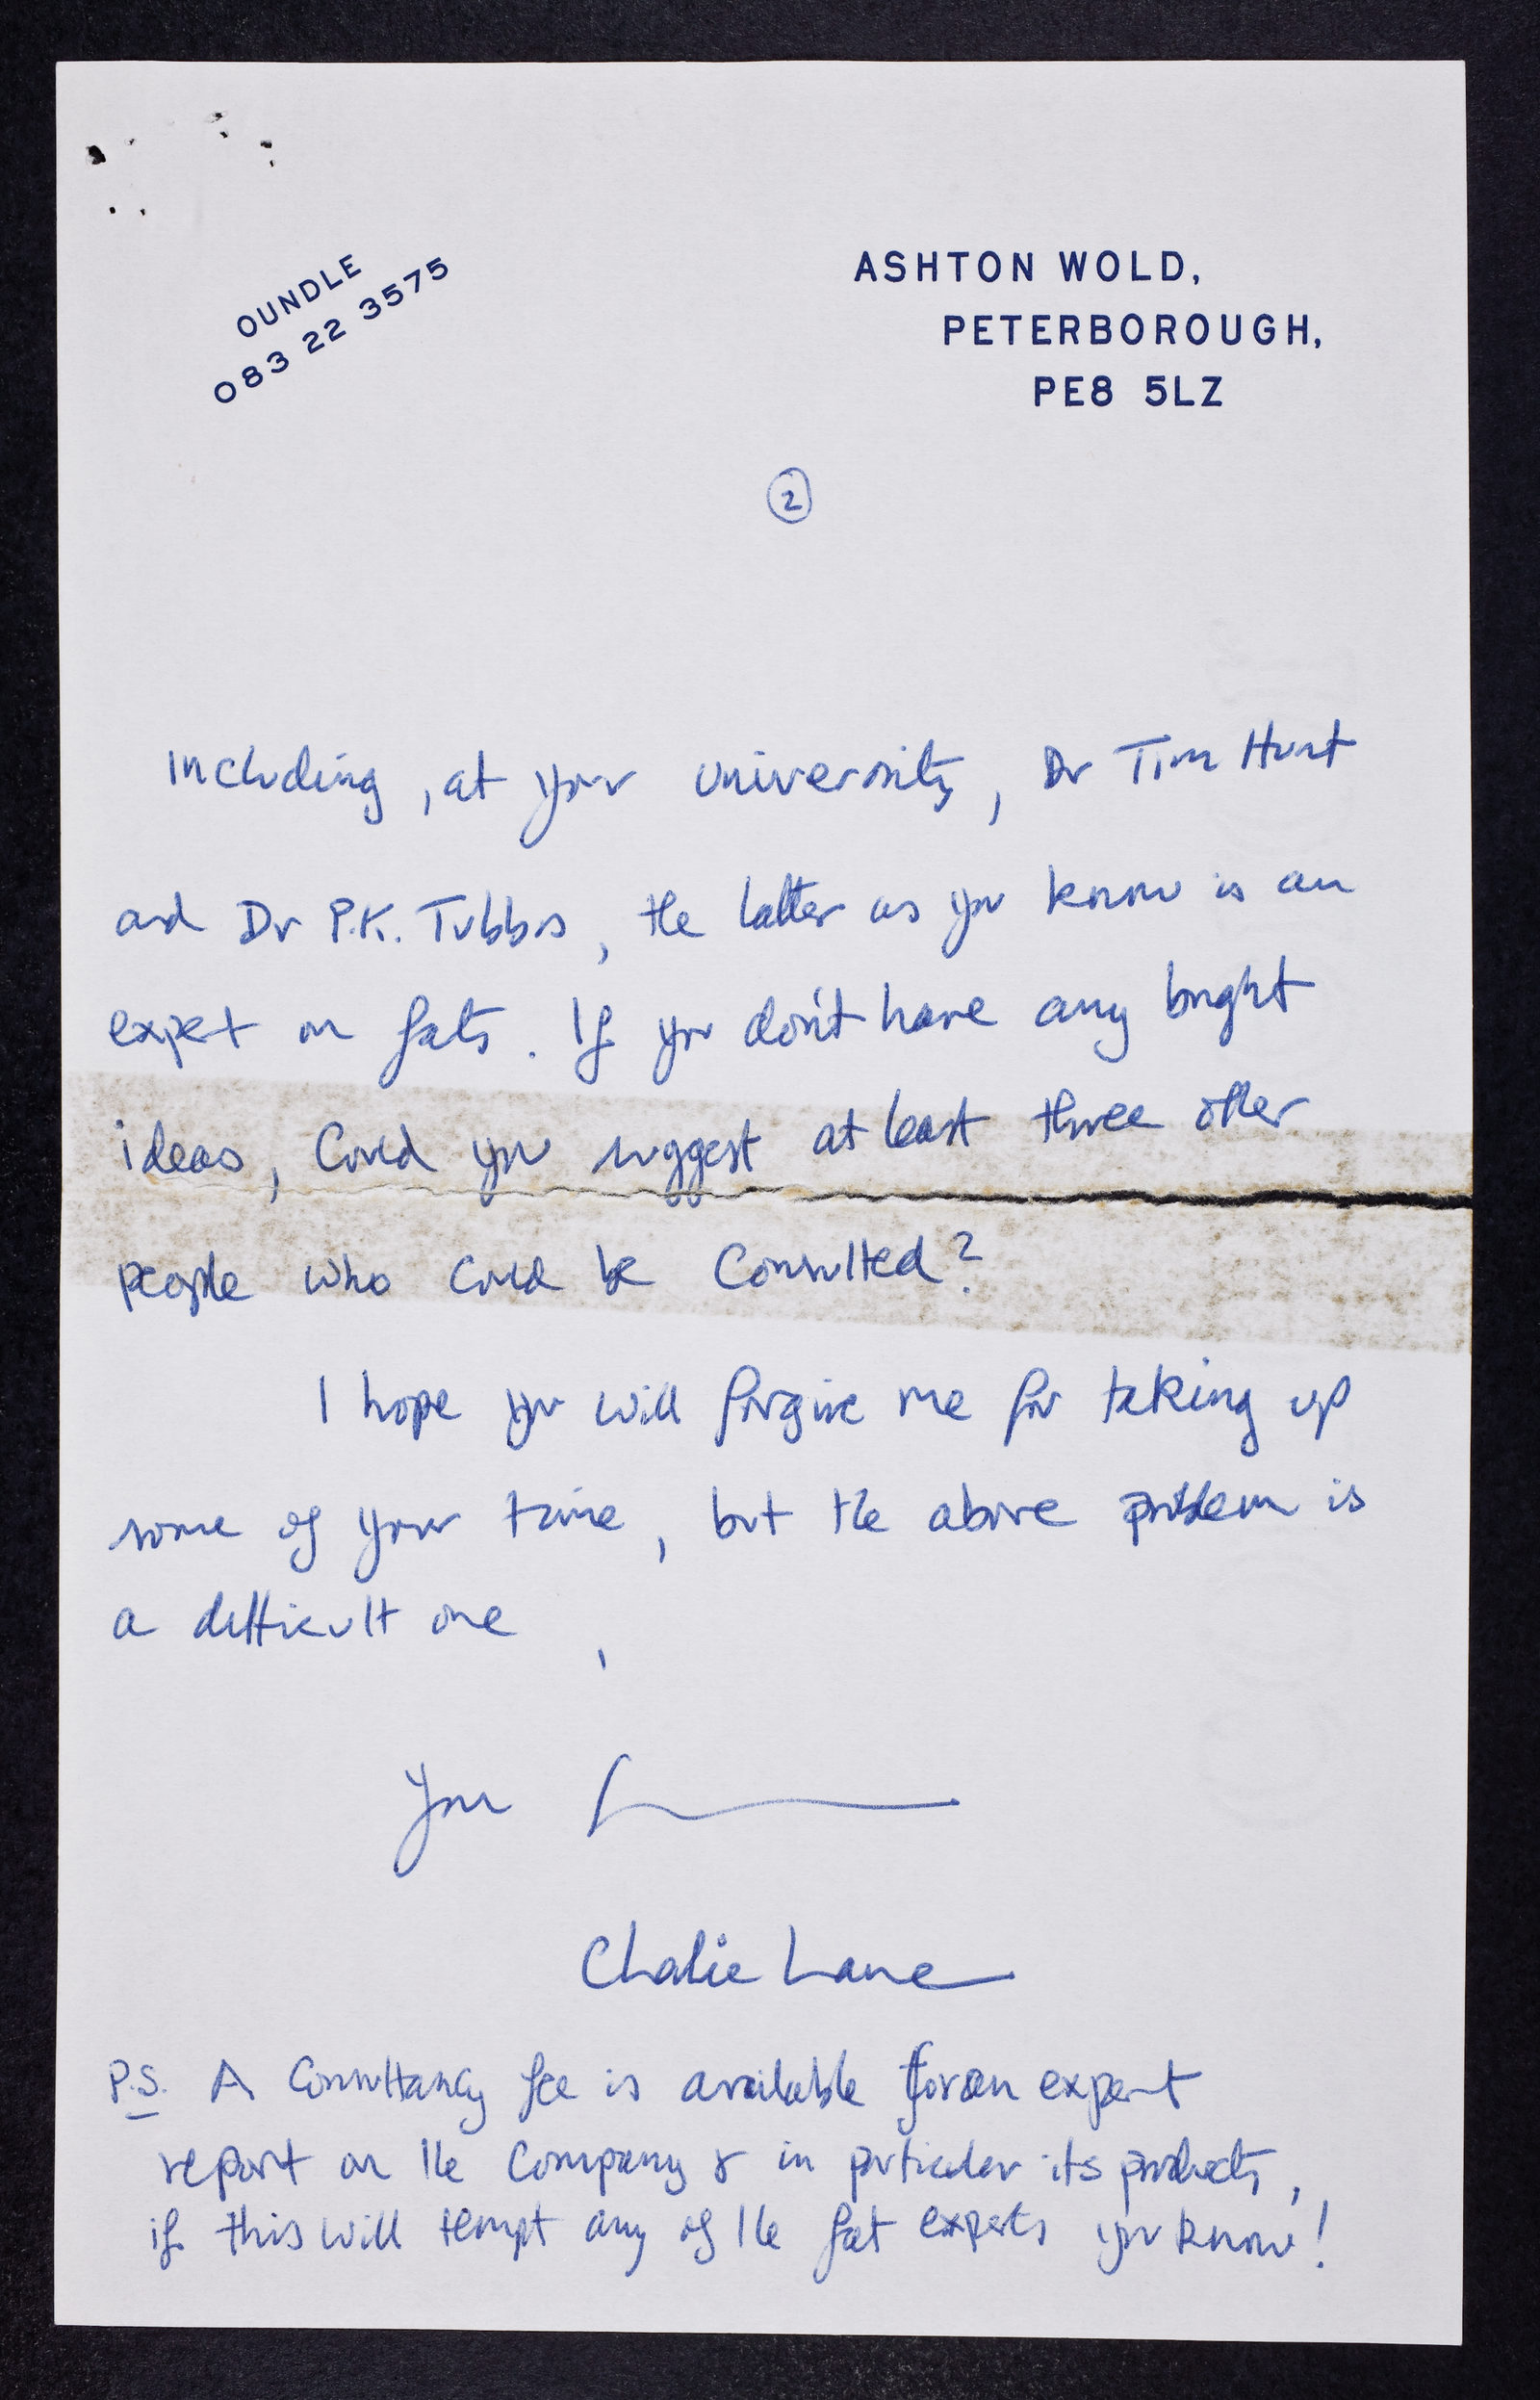 OUNDLE
083 22 3575
ASHTON WOLD,
PETERBOROUGH,
PE8 5LZ
2
including, at your university, Dr Tim Hunt
and Dr P.K. Tubbs, the latter as you know is an
expert on fats. If you don't have any bright
ideas, could you suggest at least three other
people who could be consulted?
I hope you will forgive me for taking up
some of your time, but the above problem is
a difficult one,
Your
Charlie Lane
P.S. A consultancy fee is available for an expert
report on the company & in particular its products,
if this will tempt any of the fat experts you know!